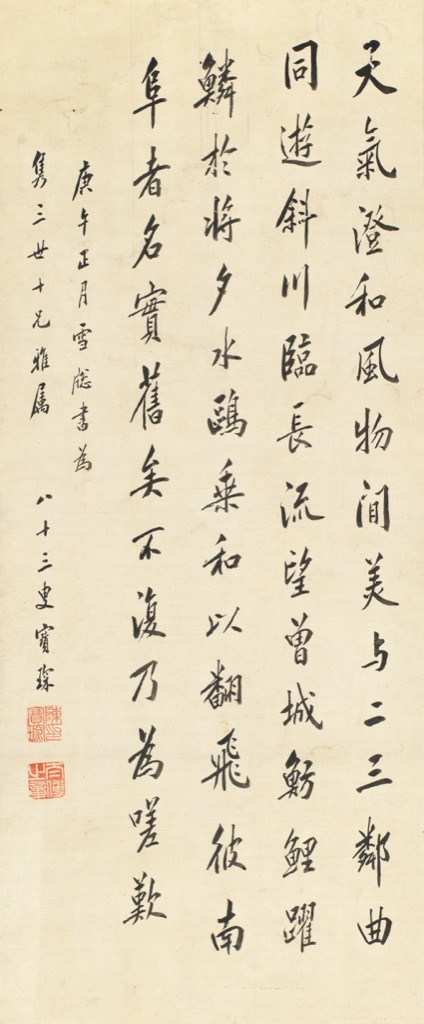 天氣澄和風物閒美与二三鄰曲
同遊斜川臨長流望曾城魴鯉躍
鱗於將夕水鷗乗和以翻飛彼南
阜者名實舊矣不復乃為嗟歎
庚午正月雪牕書為
隽三世十兄雅属 八十三叟寶琛
陳印寶琛
太傅之章